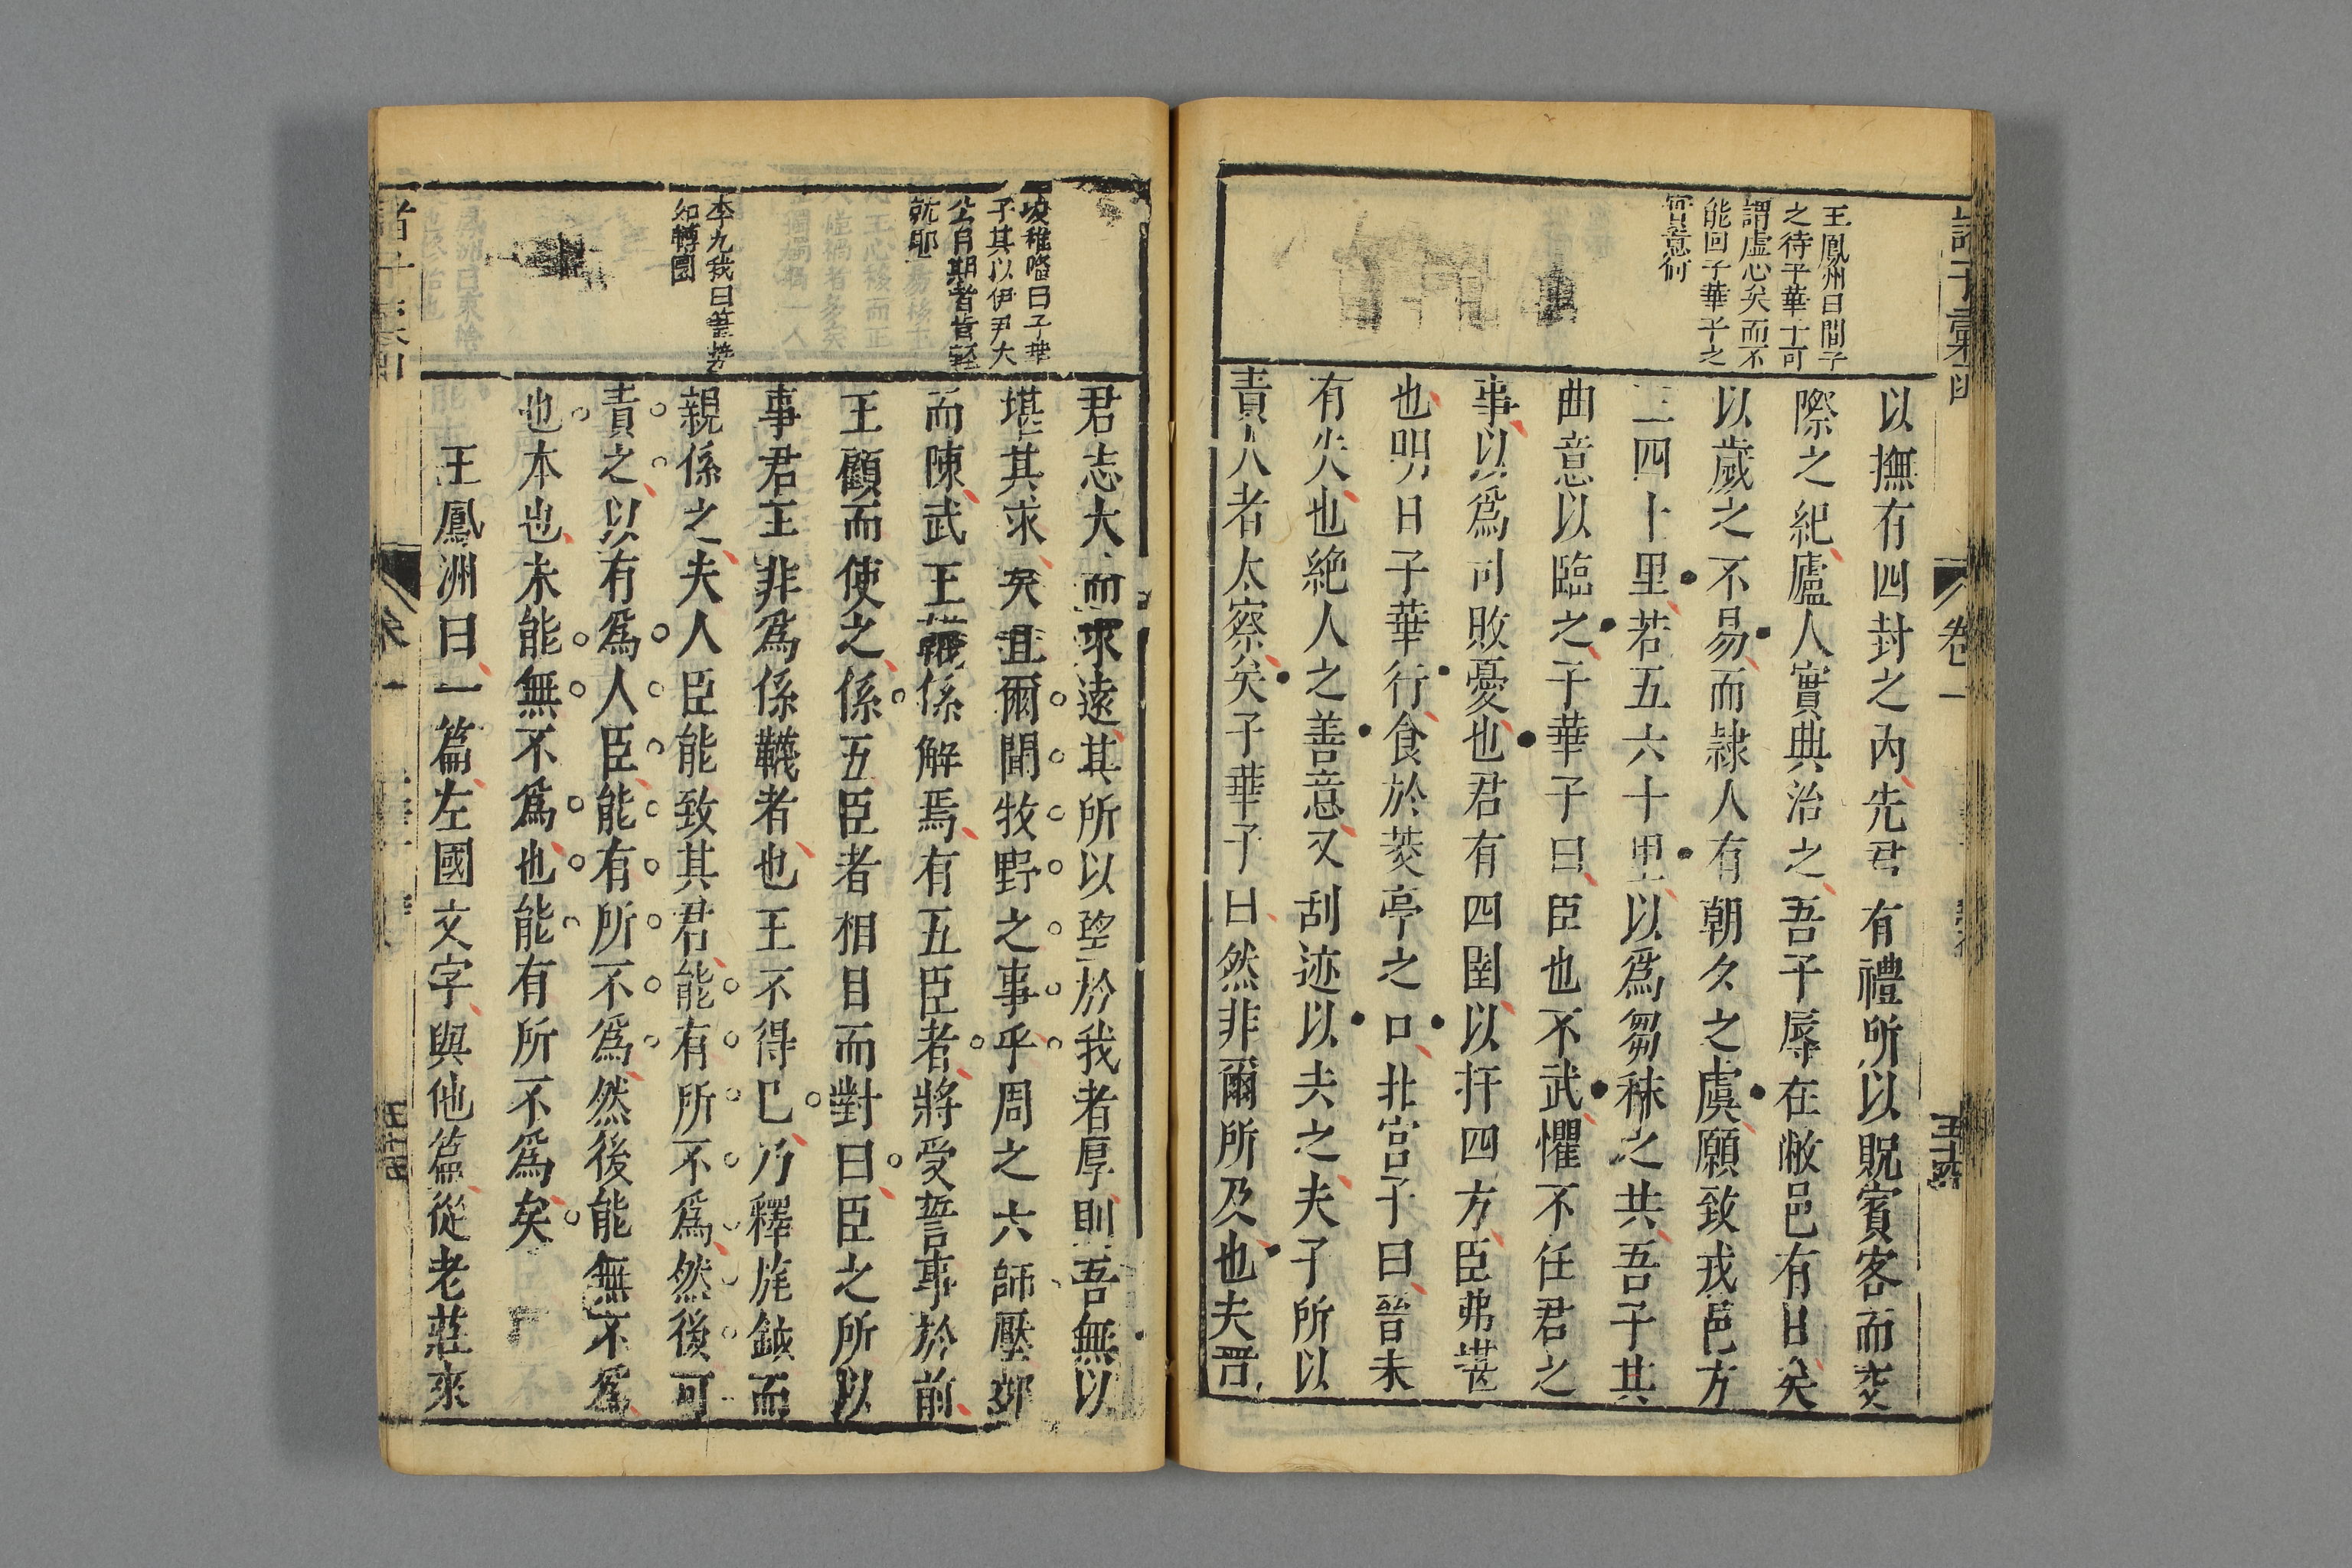 諸子彙函
卷一
王鳳州曰閭子
之待子華子可
謂虛心矣而不
能回子華子之
意何
以撫有四封之內先君有禮所以貺賓客而交
際之紀廬人實典治之吾子辱在敝邑有日矣
以歲之不易而隷人有朝夕之虞願致戎邑方
三四十里若五六十里以爲芻秣之共吾子其
曲意以臨之子華子曰臣也不武懼不任君之
事以爲司敗憂也君有四圉以扞四方臣弗堪
也明日子華行食於茭亭之口北宮子曰晉未
有失也絶人之善意又刮迹以去之夫子所以
責人者太察矣子華子曰然非爾所及也夫晉
子其以伊尹大
公自期者肯輕
就耶
李九我曰筆勢
如轉圜
君志大而求遠其所以望於我者厚則吾無以
堪其求矣且爾聞牧野之事乎周之六師壓郊
而陳武王韈係解焉有五臣者將受誓事於前
王顧而使之係五臣者相目而對曰臣之所以
事君王非爲係韈者也王不得已乃釋旄鉞而
親係之夫人臣能致其君能有所不爲然後可
責之以有爲人臣能有所不爲然後能無不爲
也本也未能無不爲也能有所不爲矣
王鳳洲曰一篇左國文字與他篇從老莊來
卷一